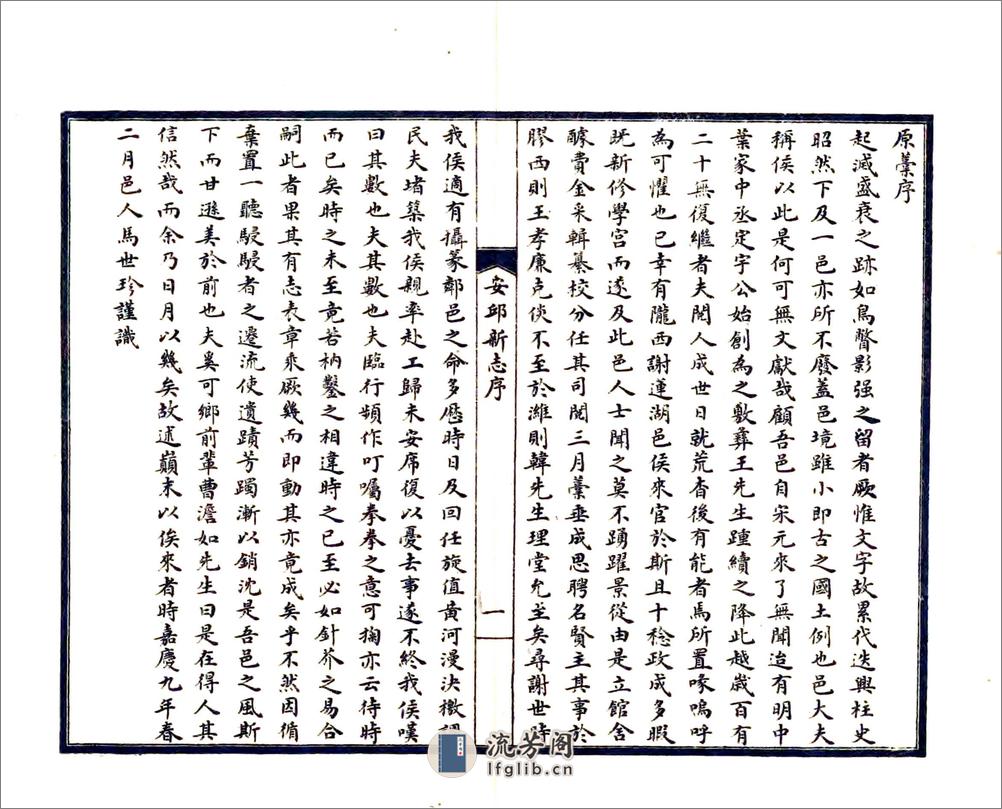 原藁序
起滅盛衰之跡如鳥瞥影强之留者厥惟文字故累代迭興柱史
昭然下及一邑亦所不廢蓋邑境雖小即古之國土例也邑大夫
稱侯以此是何可無文獻哉顧吾邑自宋元來了無聞迨有明中
葉家中丞定宇公始創為之敷彞王先生踵續之降此越歲百有
二十無復繼者夫閱人成世日就荒杳後有能者焉所置喙嗚呼
為可懼也已幸有隴西謝蓮湖邑侯來官於斯且十稔政成多暇
既新修學宮而遂及此邑人士聞之莫不踴躍景從由是立館舍
醵費金采輯纂校分任其司閱三月藁垂成思聘名賢主其事於
膠西則王孝廉克倓不至於濰則韓先生理堂允至矣尋謝世時
安邱新志序
一
我侯適有攝篆鄰邑之命多歷時日及回任旋值黃河漫決檄調
民夫堵築我侯親率赴工歸未安席復以憂去事遂不終我侯嘆
曰其數也夫其數也夫臨行頻作叮囑拳拳之意可掬亦云待時
而已矣時之未至竟若枘鑿之相違時之已至必如針芥之易合
嗣此者果其有志表章乘厥幾而即動其亦竟成矣乎不然因循
棄置一聽駸駸者之遷流使遺蹟芳躅漸以銷沈是吾邑之風斯
下而甘遜美於前也夫奚可鄉前輩曹澹如先生曰是在得人其
信然哉而余乃日月以幾矣故述巔末以俟來者時嘉慶九年春
二月邑人馬世珍謹識
流芳阁
lfglib.cn